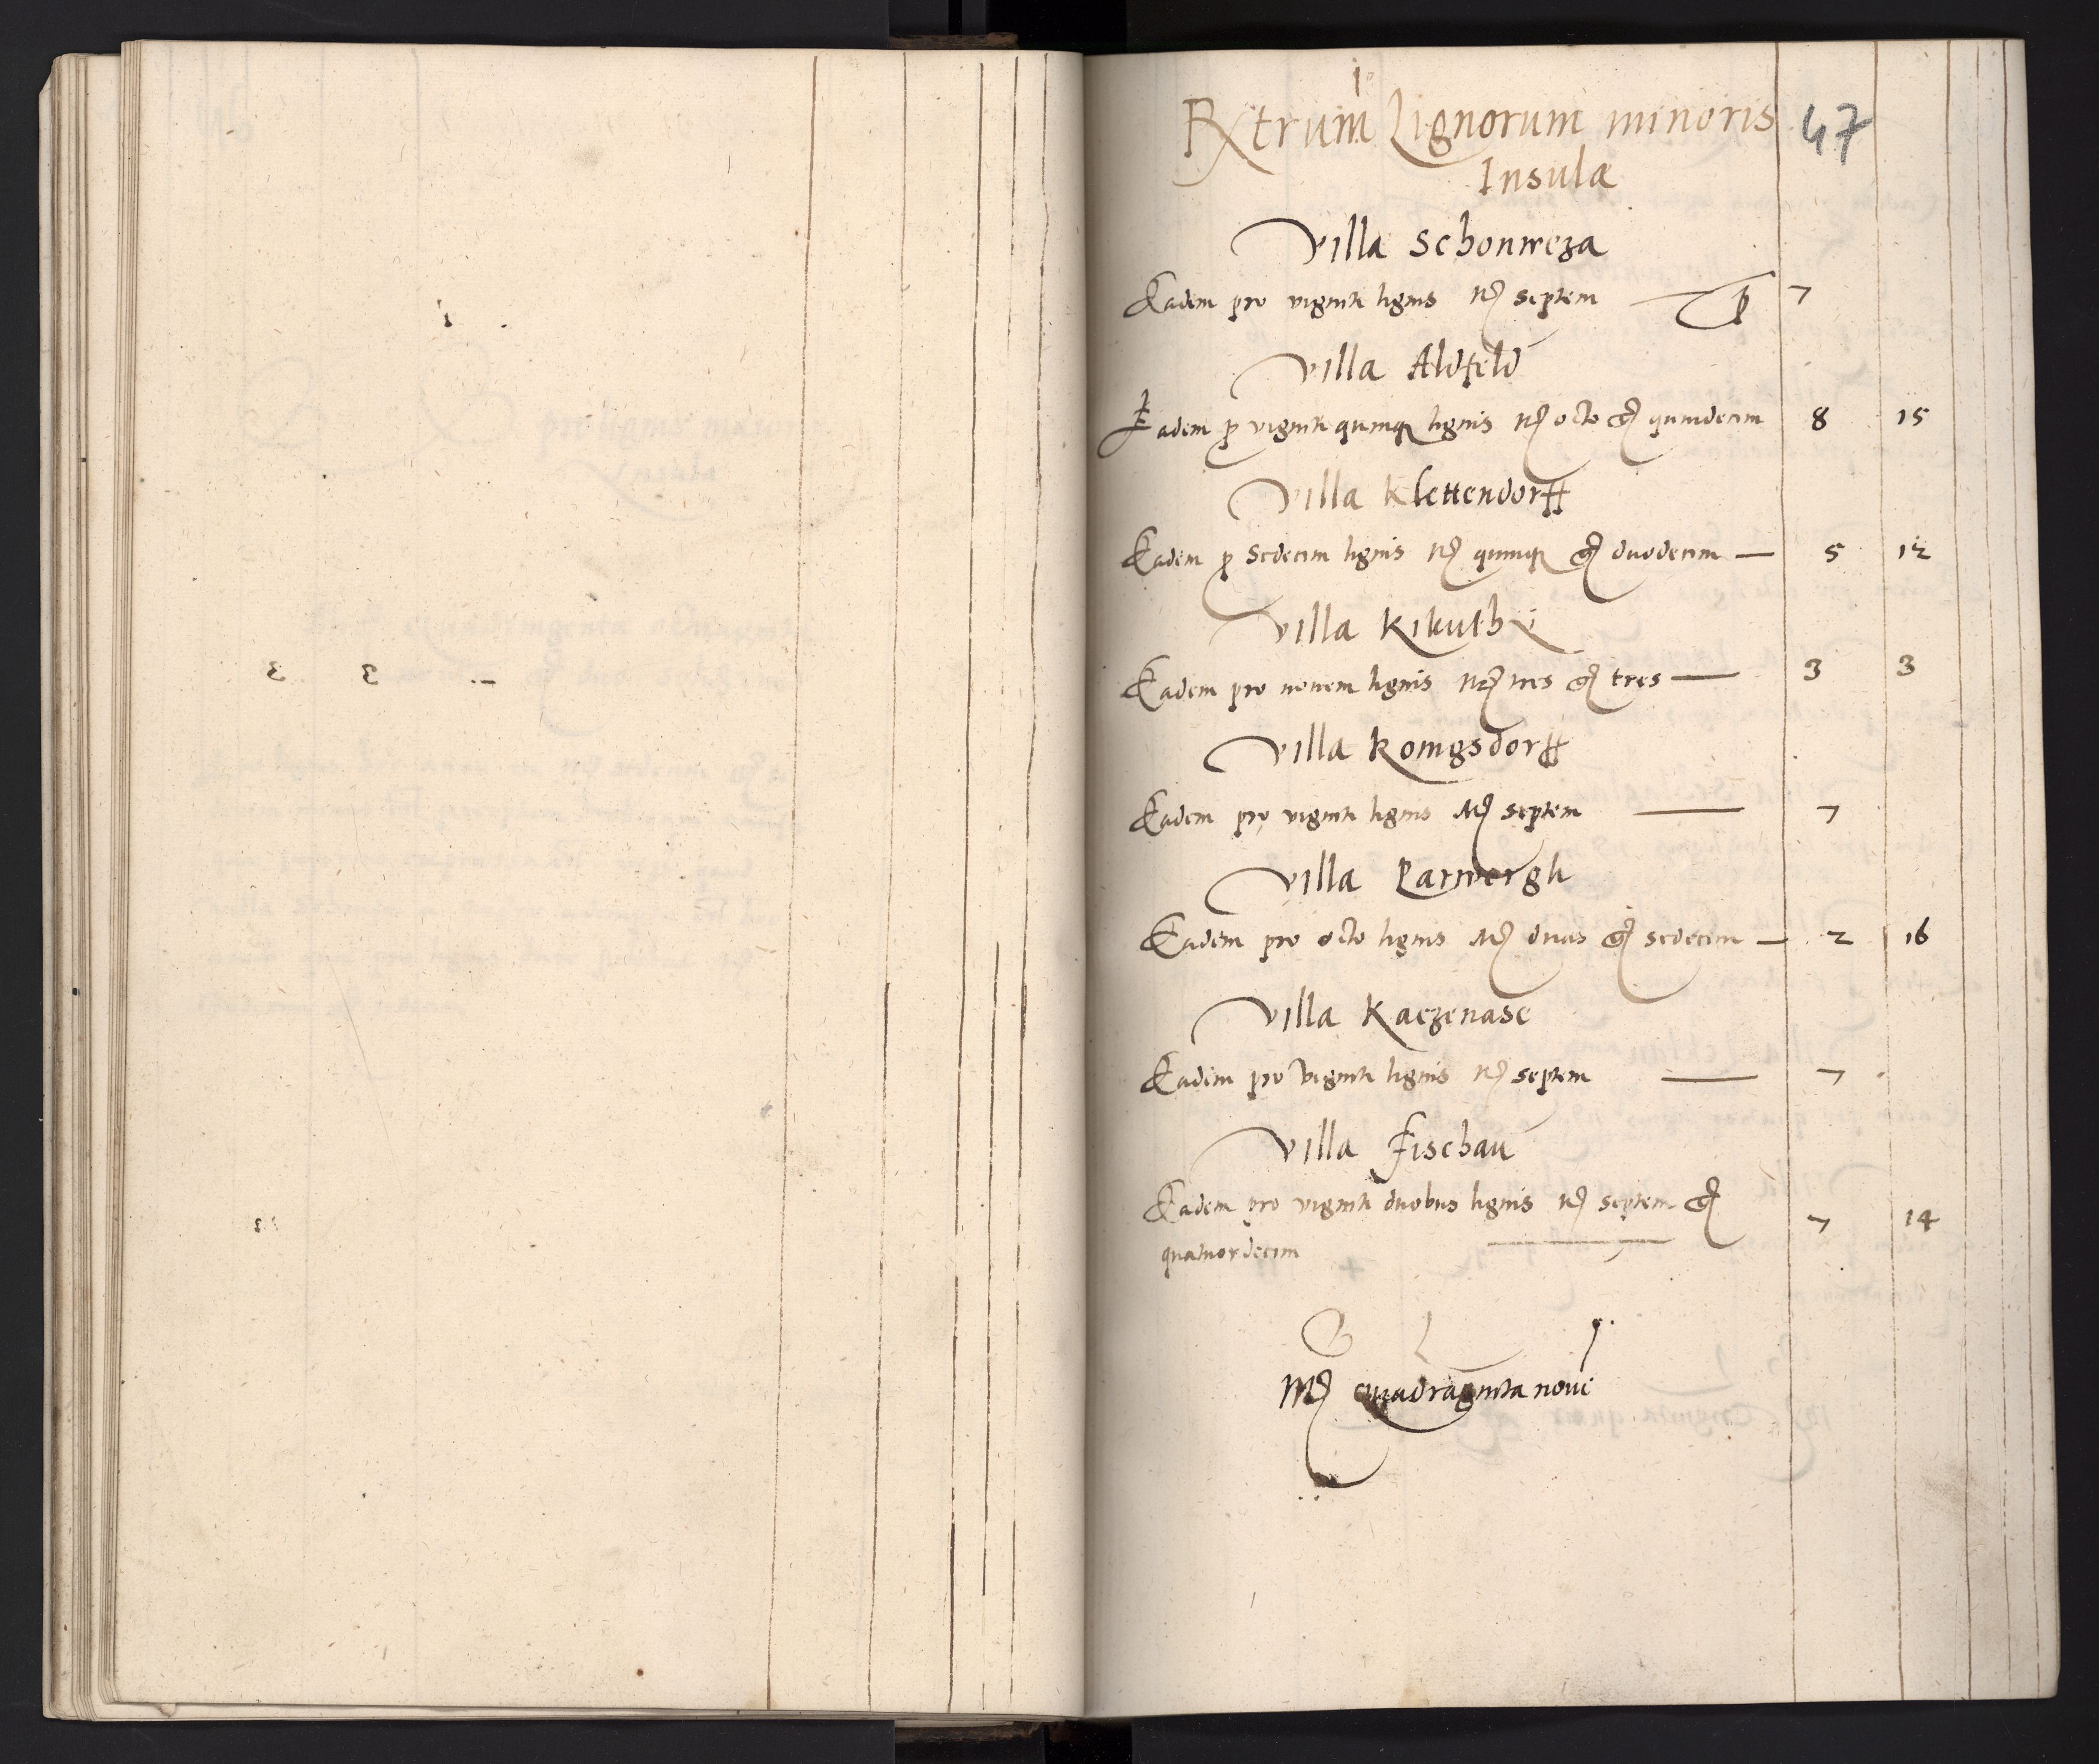 Rxtrum Lignorum minoris 47
Insula
Villa Schonweza
Eadem pro viginti lignis mr septem 7
Villa Aldfeld
Eadem p viginti quinq lignis mr octo gr quindecim 8 15
Villa Klettendorff
Eadem p Sedecim lignis mr quinq gr duodecim — 5 12
Villa Kikuth
Eadem pro novem lignis mr tres gr tres — 3 3
Villa Konigsdorff
Eadem pro viginti lignis mr septem — 7
Villa Parwergh
Eadem pro octo lignis mr duas gr sedecim — 2 16
Villa Kaczenase
Eadem pro viginti lignis mr septem — 7
Villa Fischau
Eadem pro viginti duobus lignis mr septem gr 7 14
quatuordecim
Mr quadraginta novē